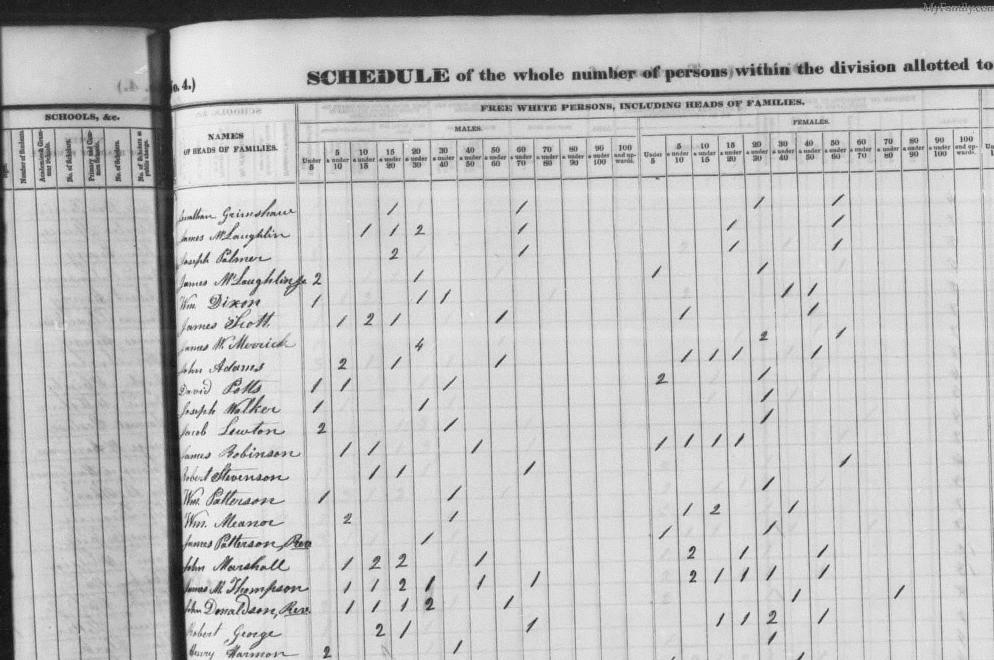 MyFamily.com
No. 4.)
SCHEDULE of the whole number of persons within the division allotted to
SCHOOLS, &c.
NAMES
OF HEADS OF FAMILIES.
FREE WHITE PERSONS, INCLUDING HEADS OF FAMILIES.
MALES.
FEMALES.
Under 5
5 & under 10
10 & under 15
15 & under 20
20 & under 30
30 & under 40
40 & under 50
50 & under 60
60 & under 70
70 & under 80
80 & under 90
90 & under 100
100 and upwards.
Under 5
5 & under 10
10 & under 15
15 & under 20
20 & under 30
30 & under 40
40 & under 50
50 & under 60
60 & under 70
70 & under 80
80 & under 90
90 & under 100
100 and upwards.
Jonathan Grimshaw 1 1 1 1
James McLaughlin 1 1 2 1 1 1
Joseph Palmer 2 1 1 1
James McLaughlin Jr 2 1 1 1
Wm. Dixon 1 1 1 1 1
James Scott 1 2 1 1 1 1
James W. Merrick 4 2 1
John Adams 2 1 1 1 1 1 1
David Potts 1 1 1 2 1
Joseph Walker 1 1 1
Jacob Lewton 2 1 1
James Robinson 1 1 1 1 1 1 1
Robert Stevenson 1 1 1 1
Wm. Patterson 1 1 1
Wm. Meanor 2 1 1 2 1
James Patterson, Rev. 1 1 1
John Marshall 1 2 2 1 2 1 1
James M. Thompson 1 1 2 1 1 1 2 1 1 1 1
John Donaldson, Rev. 1 1 1 2 1 1 1
Robert George 2 1 1 1 1 2 1
Henry Harmon 2 1 1